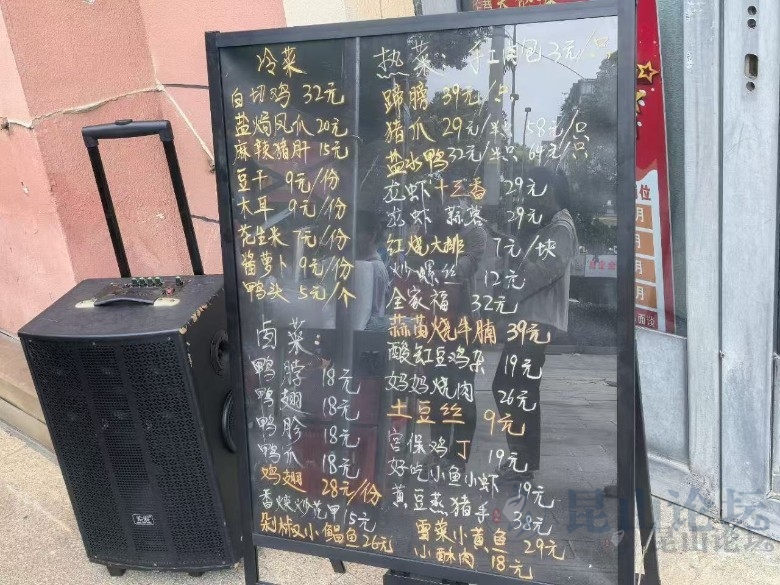 冷菜
白切鸡 32元
盐焗凤爪 20元
麻辣猪肝 15元
豆干 9元/份
木耳 9元/份
花生米 7元/份
酱萝卜 9元/份
鸭头 5元/个
卤菜:
鸭脖 18元
鸭翅 18元
鸭胗 18元
鸭爪 18元
鸡翅 28元/份
香辣炒花甲 15元
剁椒小鲳鱼 26元
热菜 手工肉包 3元/只
蹄膀 39元/只
猪爪 29元/半只 58元/只
盐水鸭 32元/半只 64元/只
龙虾十三香 29元
龙虾 蒜蓉 29元
红烧大排 7元/块
炒螺丝 12元
全家福 32元
蒜苗烧牛腩 39元
酸豇豆鸡杂 19元
妈妈烧肉 26元
土豆丝 9元
宫保鸡丁 19元
好吃小鱼小虾 19元
黄豆蒸猪手 38元
雪菜小黄鱼 29元
小酥肉 18元
位
月
月
月
月
昆山论坛
昆山论坛